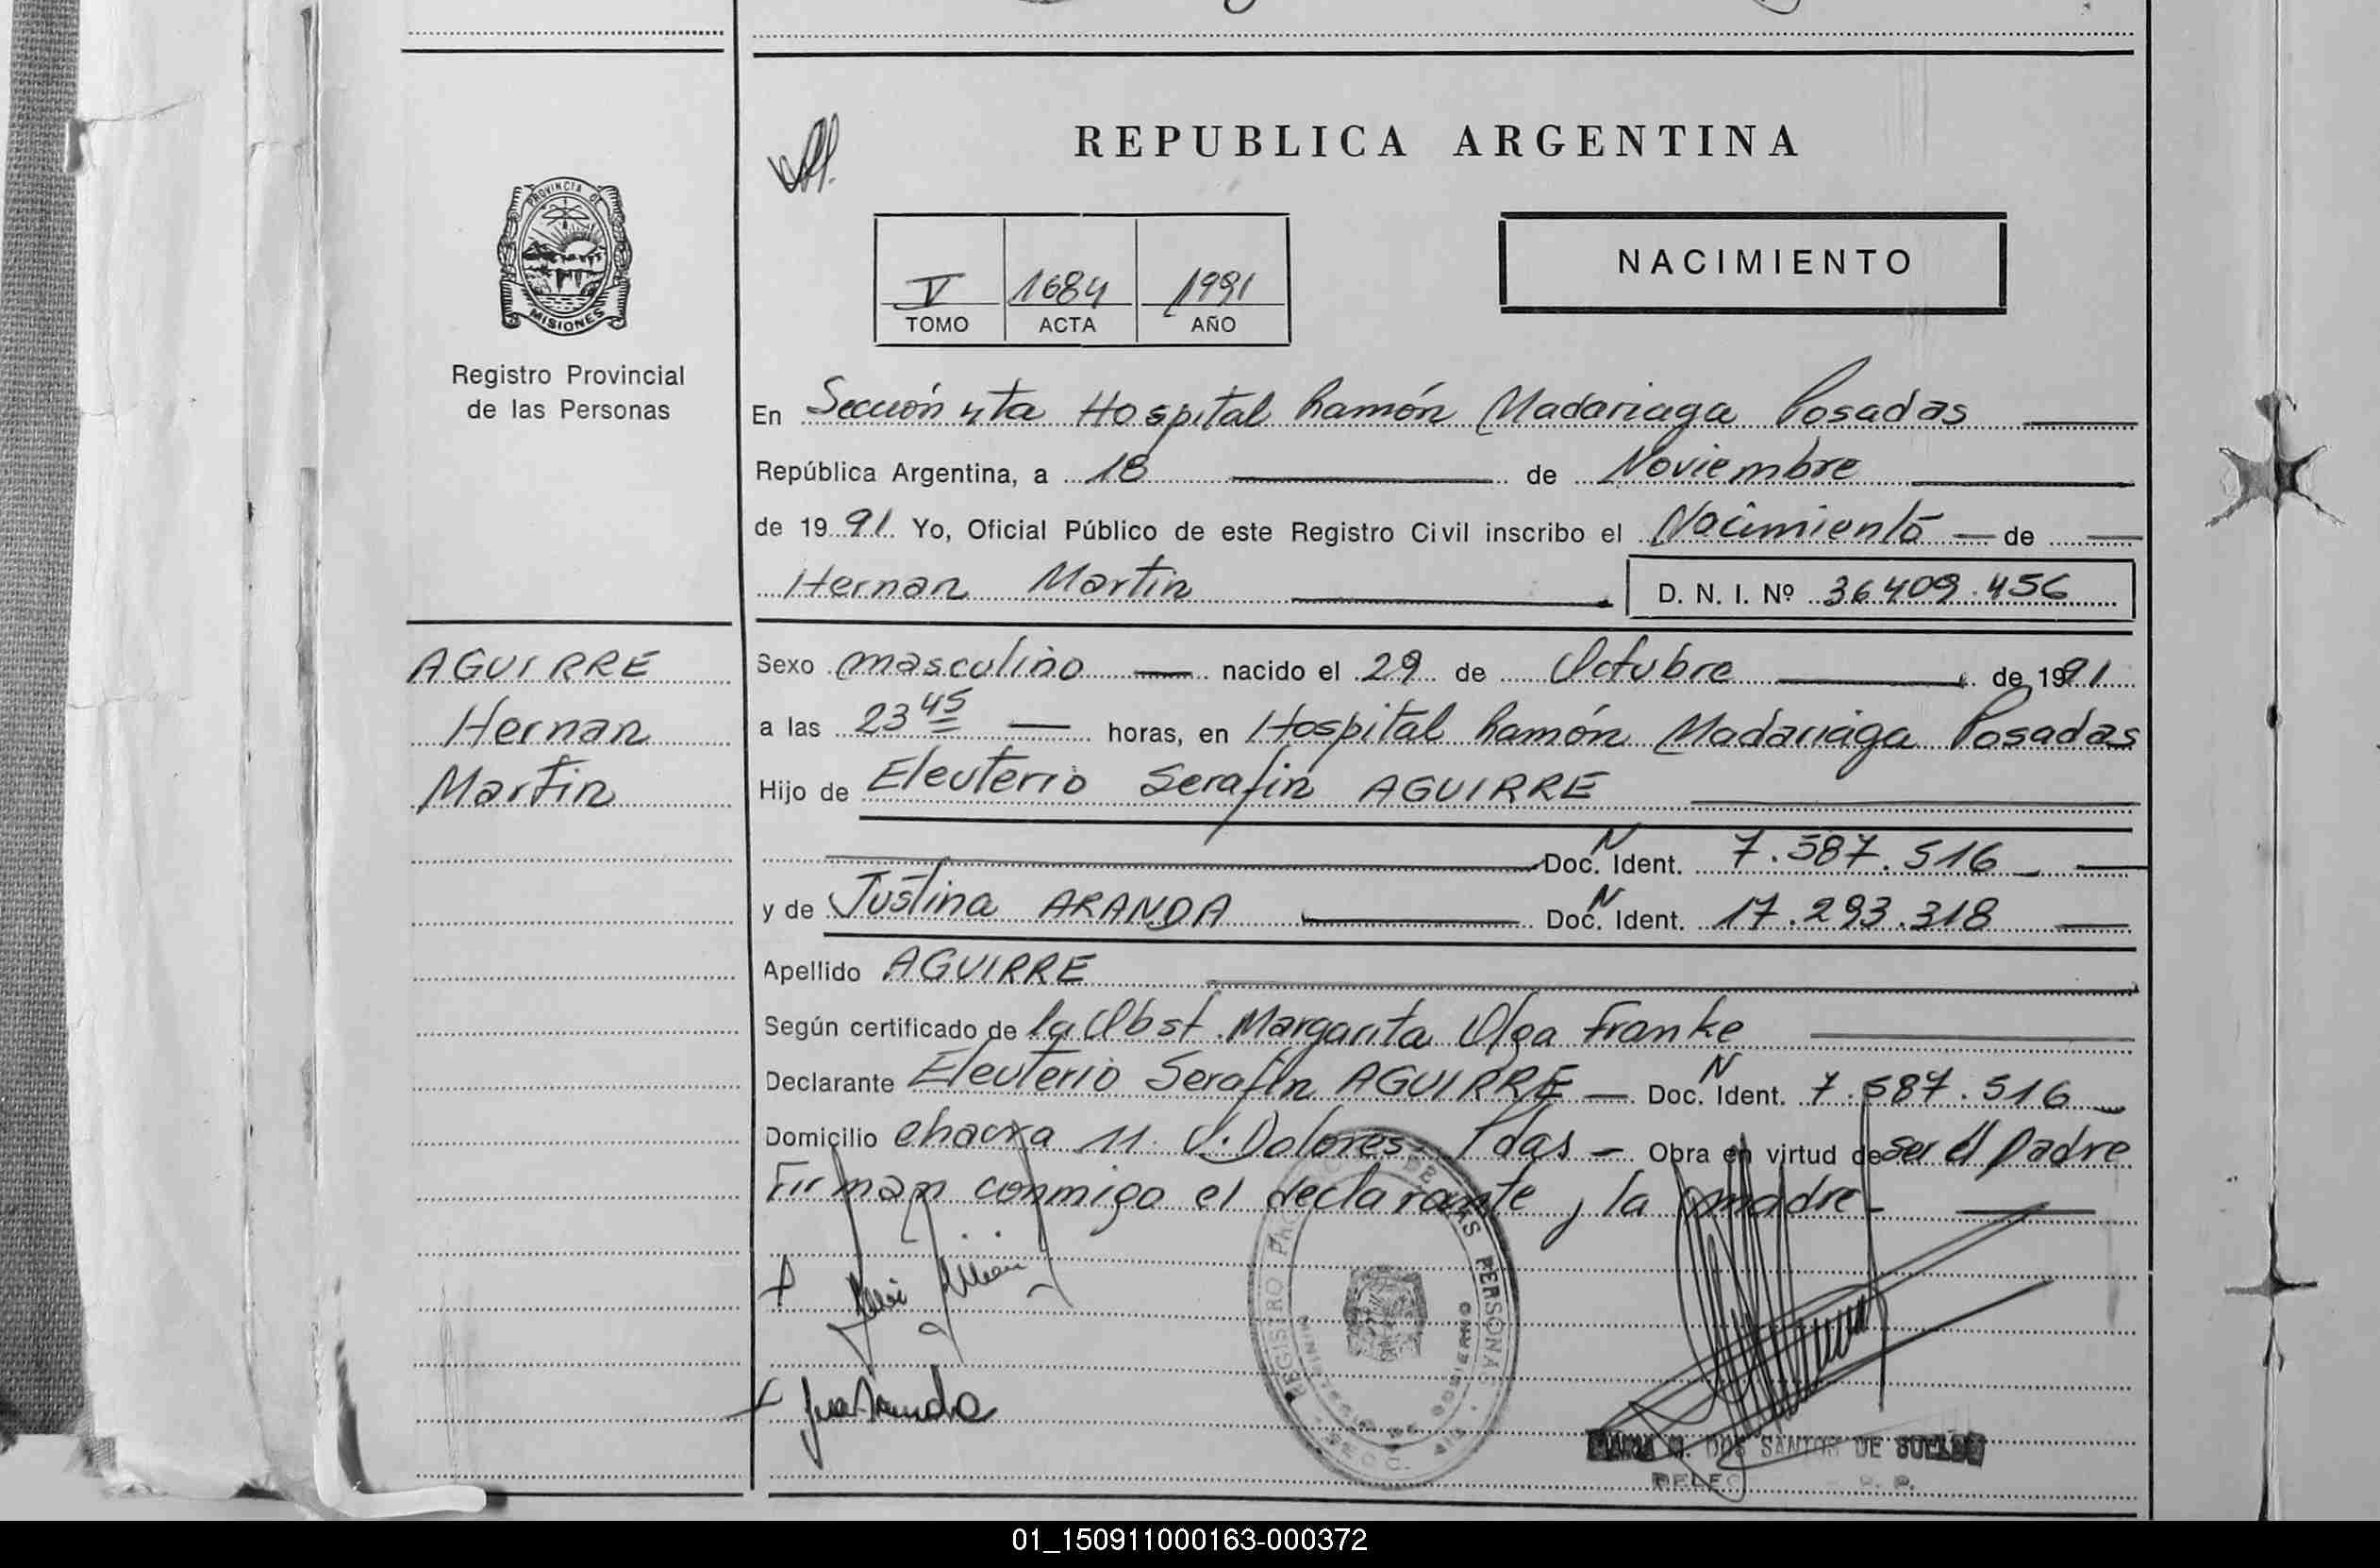 REPUBLICA ARGENTINA
PROVINCIA DE
MISIONES
Registro Provincial
de las Personas
V 1684 1991
TOMO ACTA AÑO
NACIMIENTO
En Sección 4ta Hospital Ramón Madariaga Posadas
República Argentina, a 18 de Noviembre
de 1991 Yo, Oficial Público de este Registro Civil inscribo el Nacimiento de
Hernan Martin D. N. I. Nº 36409.456
AGUIRRE
Hernan
Martin
Sexo masculino nacido el 29 de Octubre de 1991
a las 23 45 horas, en Hospital Ramón Madariaga Posadas
Hijo de Eleuterio Serafin AGUIRRE
Doc. N Ident. 7.587.516
y de Justina ARANDA Doc. N Ident. 17.293.318
Apellido AGUIRRE
Según certificado de la Obst. Margarita Olga Franke
Declarante Eleuterio Serafin AGUIRRE Doc. N Ident. 7.587.516
Domicilio chacra 11 V. Dolores Pdas Obra en virtud de ser el padre
Firman conmigo el declarante y la madre
REGISTRO DE LAS PERSONAS
MINISTERIO DE GOBIERNO
SECC. 4ta
DOS SANTOS DE
01_150911000163-000372